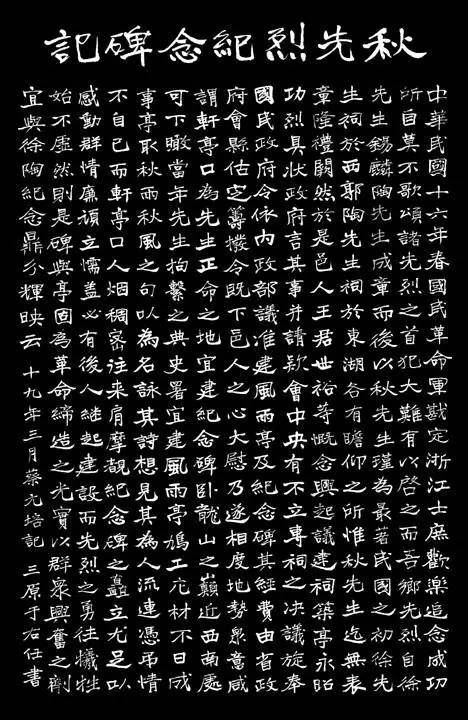 秋先烈紀念碑記
中華民國十六年春國民革命軍戡定浙江士庶歡樂追念成功
所自莫不歌頌諸先烈之首犯大難有以啓之而吾鄉先烈自徐
先生錫麟陶先生成章而後以秋先生瑾為最著民國之初徐先
生祠於西郭陶先生祠於東湖各有瞻仰之所惟秋先生迄無表
章隆禮闕然於是邑人王君世裕等慨念興起議建祠築亭永昭
功烈具狀政府言其事并請款會中央有不立專祠之决議旋奉
國民政府令依內政部議准建風雨亭及紀念碑其經費由省政
府會縣估定籌撥令既下邑人之心大慰乃遂相度地勢衆意咸
謂軒亭口為先生正命之地宜建紀念碑卧龍山之巔近西南處
可下瞰當年先生拘繫之典史署宜建風雨亭鳩工庀材不日成
事亭取秋雨秋風之句以為名詠其詩想見其為人流連憑弔情
不自已而軒亭口人烟稠密往來肩摩覩紀念碑之矗立尤足以
感動群情廉頑立懦蓋必有後人繼起建設而先烈之勇往犧牲
始不虛然則是碑與亭固為革命締造之光實以群衆興奮之劑
宜與徐陶紀念鼎分輝映云 十九年三月蔡元培記 三原于右任書